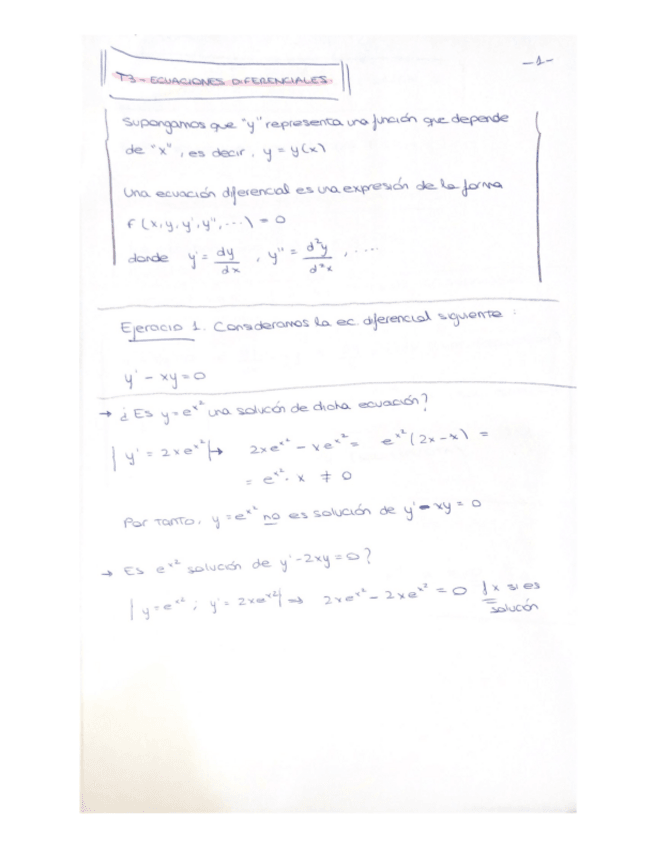 -1-
T3-ECUACIONES DIFERENCIALES.
Supongamos que "y" representa una función que depende
de "x", es decir, y = y(x)
Una ecuación diferencial es una expresión de la forma
f(x,y,y',y'',...) = 0
donde y' = dy/dx , y'' = d²y/d²x , ....
Ejercicio 1. Consideramos la ec. diferencial siguiente:
y' - xy = 0
→ ¿Es y = e^x² una solución de dicha ecuación?
| y' = 2xe^x² |→ 2xe^x² - xe^x² = e^x²(2x-x) =
= e^x² · x ≠ 0
Por tanto, y = e^x² no es solución de y' - xy = 0
→ Es e^x² solución de y' - 2xy = 0?
| y = e^x² ; y' = 2xe^x² |→ 2xe^x² - 2xe^x² = 0 si es
solución